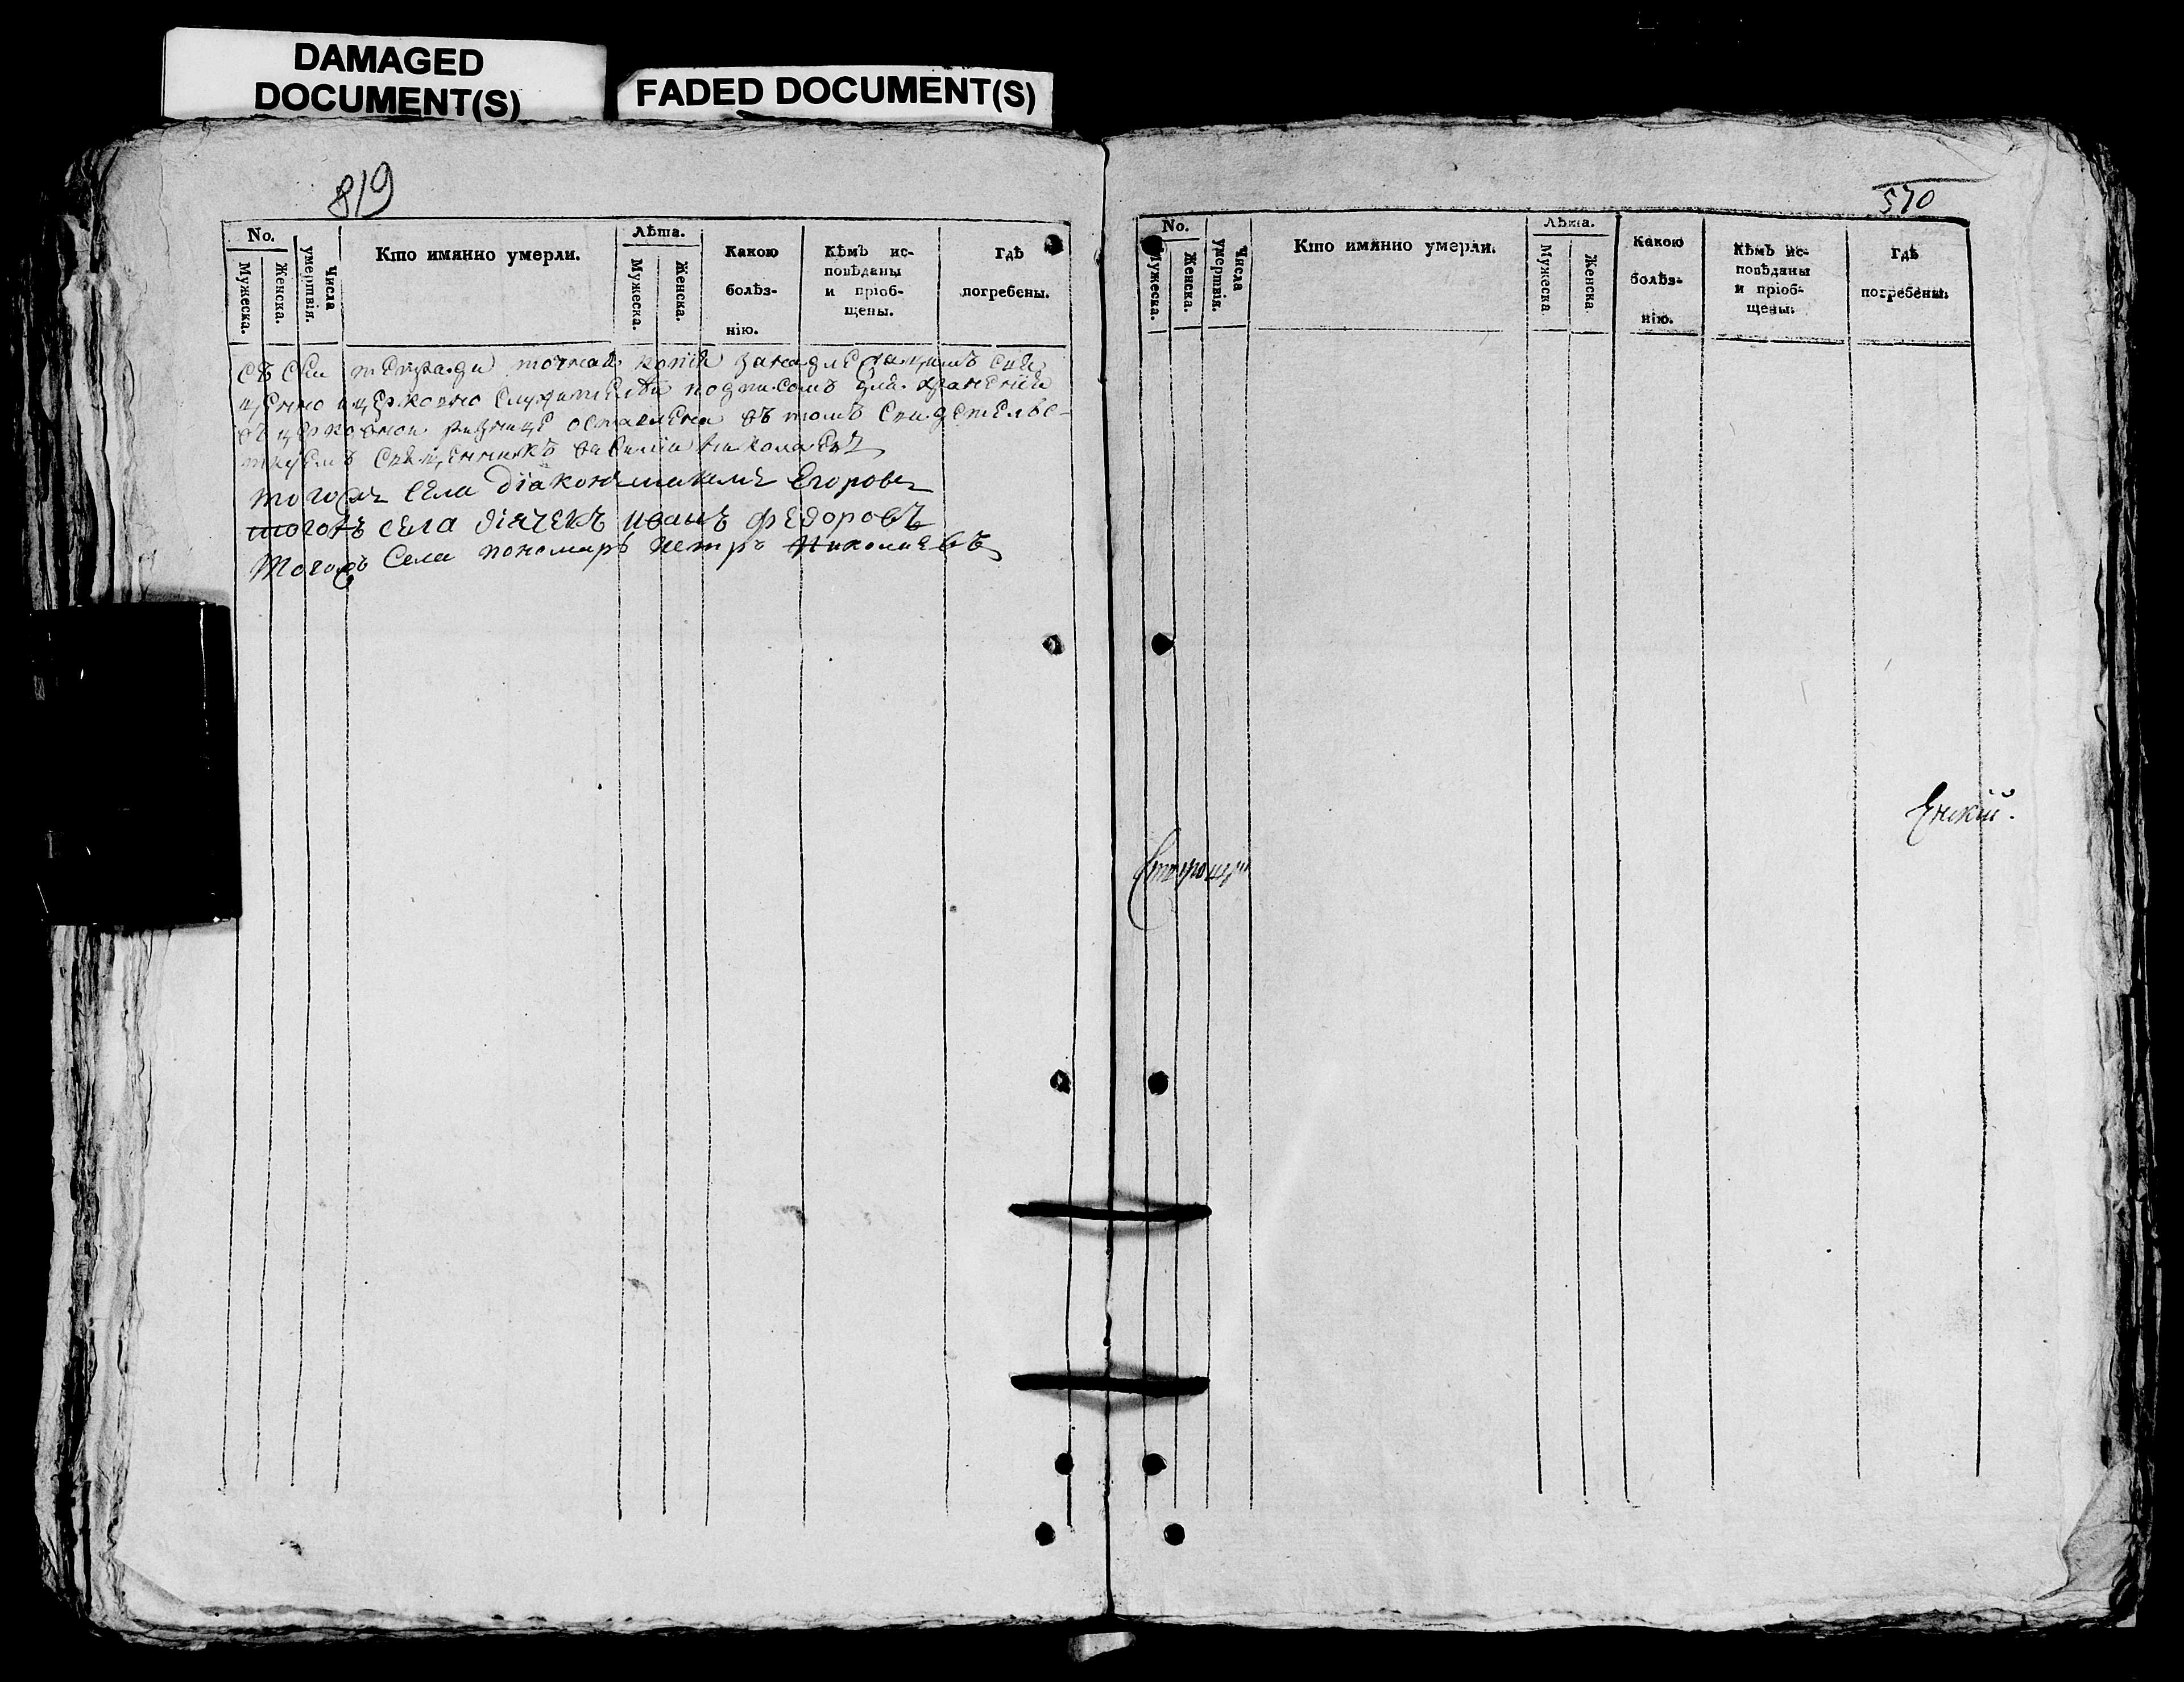 DAMAGED
DOCUMENT(S)
FADED DOCUMENT(S)
819
No.
Мужеска.
Женска.
Числа
умертвія.
Кто имянно умерли.
Лѣта.
Мужеска.
Женска.
Какою
болѣз-
нію.
Кѣмъ ис-
повѣданы
и пріоб-
щены.
Гдѣ
погребены.
съ сеи тетради точная копия за надлежащимъ свя
щенно церковно служителеи подписомъ для хранения
въ церковнои ризнице оставлена въ томъ свидетелс-
твуемъ священникъ василии николаевъ
тогожъ села діаконъ Егоровъ
тогожъ села діячекъ иванъ федоровъ
Тогожъ села пономарь петръ Николаевъ
570
No.
Мужеска.
Женска.
Числа
умертвія.
Кто имянно умерли.
Лѣта.
Мужеска
Женска
Какою
болѣз-
нію.
Кѣмъ ис-
повѣданы
и пріоб-
щены.
Гдѣ
погребены.